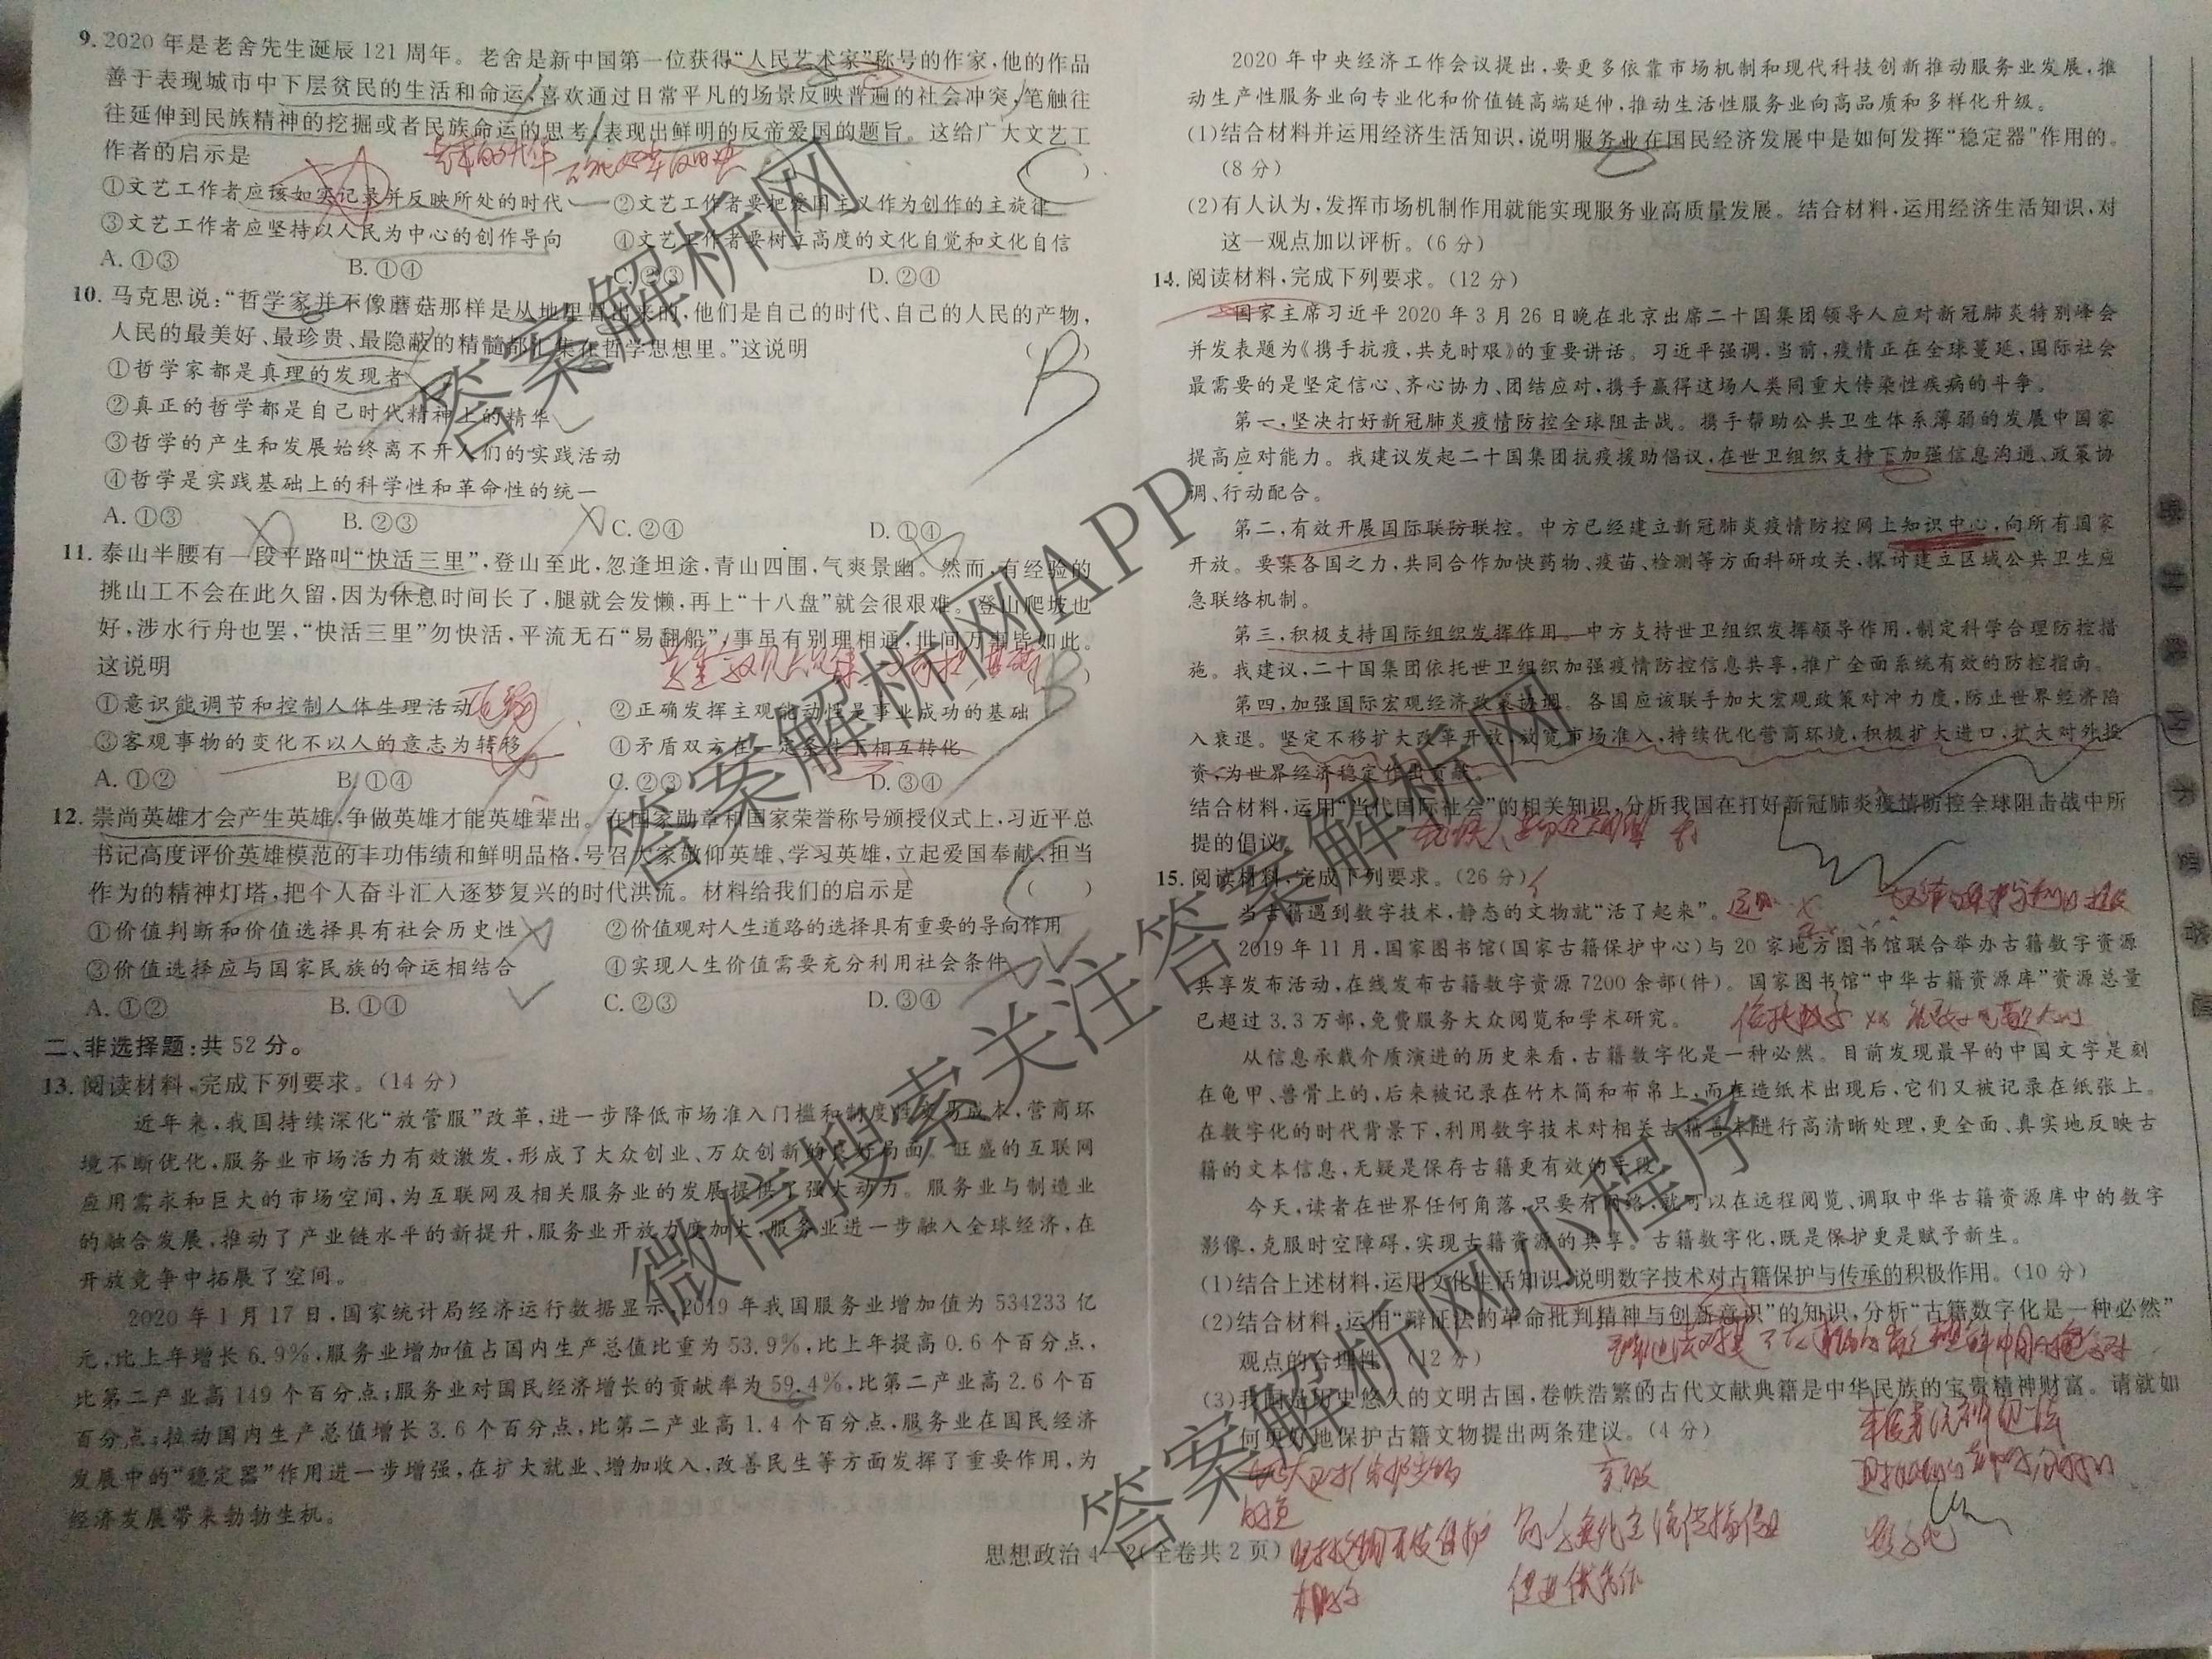 9. 2020年是老舍先生诞辰121周年。老舍是新中国第一位获得“人民艺术家”称号的作家,他的作品
善于表现城市中下层贫民的生活和命运,喜欢通过日常平凡的场景反映普遍的社会冲突,笔触往
往延伸到民族精神的挖掘或者民族命运的思考,表现出鲜明的反帝爱国的题旨。这给广大文艺工
作者的启示是 ( )
C
①文艺工作者应该如实记录并反映所处的时代 ②文艺工作者要把爱国主义作为创作的主旋律
③文艺工作者应坚持以人民为中心的创作导向 ④文艺工作者要树立高度的文化自觉和文化自信
A. ①③ B. ①④ C. ②③ D. ②④
10. 马克思说:“哲学家并不像蘑菇那样是从地里冒出来的,他们是自己的时代、自己的人民的产物,
人民的最美好、最珍贵、最隐蔽的精髓都汇集在哲学思想里。”这说明 ( )
B
①哲学家都是真理的发现者
②真正的哲学都是自己时代精神上的精华
③哲学的产生和发展始终离不开人们的实践活动
④哲学是实践基础上的科学性和革命性的统一
A. ①③ B. ②③ C. ②④ D. ①④
11. 泰山半腰有一段平路叫“快活三里”,登山至此,忽逢坦途,青山四围,气爽景幽。然而,有经验的
挑山工不会在此久留,因为休息时间长了,腿就会发懒,再上“十八盘”就会很艰难。登山爬坡也
好,涉水行舟也罢,“快活三里”勿快活,平流无石“易翻船”,事虽有别理相通,世间万事皆如此。
这说明
B
①意识能调节和控制人体生理活动 ②正确发挥主观能动性是事业成功的基础
③客观事物的变化不以人的意志为转移 ④矛盾双方在一定条件下相互转化
A. ①② B. ①④ C. ②③ D. ③④
12. 崇尚英雄才会产生英雄,争做英雄才能英雄辈出。在国家勋章和国家荣誉称号颁授仪式上,习近平总
书记高度评价英雄模范的丰功伟绩和鲜明品格,号召大家敬仰英雄、学习英雄,立起爱国奉献、担当
作为的精神灯塔,把个人奋斗汇入逐梦复兴的时代洪流。材料给我们的启示是 ( )
C
①价值判断和价值选择具有社会历史性 ②价值观对人生道路的选择具有重要的导向作用
③价值选择应与国家民族的命运相结合 ④实现人生价值需要充分利用社会条件
A. ①② B. ①④ C. ②③ D. ③④
二、非选择题:共52分。
13. 阅读材料,完成下列要求。(14分)
近年来,我国持续深化“放管服”改革,进一步降低市场准入门槛和制度性交易成本,营商环
境不断优化,服务业市场活力有效激发,形成了大众创业、万众创新的良好局面。旺盛的互联网
应用需求和巨大的市场空间,为互联网及相关服务业的发展提供了强大动力。服务业与制造业
的融合发展,推动了产业链水平的新提升,服务业开放力度加大,服务业进一步融入全球经济,在
开放竞争中拓展了空间。
2020年1月17日,国家统计局经济运行数据显示,2019年我国服务业增加值为534233亿
元,比上年增长6.9%,服务业增加值占国内生产总值比重为53.9%,比上年提高0.6个百分点,
比第二产业高149个百分点;服务业对国民经济增长的贡献率为59.4%,比第二产业高2.6个百
百分点;拉动国内生产总值增长3.6个百分点,比第二产业高1.4个百分点,服务业在国民经济
发展中的“稳定器”作用进一步增强,在扩大就业、增加收入,改善民生等方面发挥了重要作用,为
经济发展带来勃勃生机。
2020年中央经济工作会议提出,要更多依靠市场机制和现代科技创新推动服务业发展,推
动生产性服务业向专业化和价值链高端延伸,推动生活性服务业向高品质和多样化升级。
(1)结合材料并运用经济生活知识,说明服务业在国民经济发展中是如何发挥“稳定器”作用的。
(8分)
(2)有人认为,发挥市场机制作用就能实现服务业高质量发展。结合材料,运用经济生活知识,对
这一观点加以评析。(6分)
14. 阅读材料,完成下列要求。(12分)
国家主席习近平2020年3月26日晚在北京出席二十国集团领导人应对新冠肺炎特别峰会
并发表题为《携手抗疫,共克时艰》的重要讲话。习近平强调,当前,疫情正在全球蔓延,国际社会
最需要的是坚定信心、齐心协力、团结应对,携手赢得这场人类同重大传染性疾病的斗争。
第一,坚决打好新冠肺炎疫情防控全球阻击战。携手帮助公共卫生体系薄弱的发展中国家
提高应对能力。我建议发起二十国集团抗疫援助倡议,在世卫组织支持下加强信息沟通、政策协
调、行动配合。
第二,有效开展国际联防联控。中方已经建立新冠肺炎疫情防控网上知识中心,向所有国家
开放。要集各国之力,共同合作加快药物、疫苗、检测等方面科研攻关,探讨建立区域公共卫生应
急联络机制。
第三,积极支持国际组织发挥作用。中方支持世卫组织发挥领导作用,制定科学合理防控措
施。我建议,二十国集团依托世卫组织加强疫情防控信息共享,推广全面系统有效的防控指南。
第四,加强国际宏观经济政策协调。各国应该联手加大宏观政策对冲力度,防止世界经济陷
入衰退。坚定不移扩大改革开放,放宽市场准入,持续优化营商环境,积极扩大进口,扩大对外投
资,为世界经济稳定作出贡献。
结合材料,运用“当代国际社会”的相关知识,分析我国在打好新冠肺炎疫情防控全球阻击战中所
提的倡议。
15. 阅读材料,完成下列要求。(26分)
当古籍遇到数字技术,静态的文物就“活了起来”。
2019年11月,国家图书馆(国家古籍保护中心)与20家地方图书馆联合举办古籍数字资源
共享发布活动,在线发布古籍数字资源7200余部(件)。国家图书馆“中华古籍资源库”资源总量
已超过3.3万部,免费服务大众阅览和学术研究。
从信息承载介质演进的历史来看,古籍数字化是一种必然。目前发现最早的中国文字是刻
在龟甲、兽骨上的,后来被记录在竹木简和布帛上,而在造纸术出现后,它们又被记录在纸张上。
在数字化的时代背景下,利用数字技术对相关古籍善本进行高清晰处理,更全面、真实地反映古
籍的文本信息,无疑是保存古籍更有效的手段。
今天,读者在世界任何角落,只要有网络,就可以在远程阅览、调取中华古籍资源库中的数字
影像,克服时空障碍,实现古籍资源的共享。古籍数字化,既是保护更是赋予新生。
(1)结合上述材料,运用文化生活知识,说明数字技术对古籍保护与传承的积极作用。(10分)
(2)结合材料,运用“辩证法的革命批判精神与创新意识”的知识,分析“古籍数字化是一种必然”
观点的合理性。(12分)
(3)我国是历史悠久的文明古国,卷帙浩繁的古代文献典籍是中华民族的宝贵精神财富。请就如
何更好地保护古籍文物提出两条建议。(4分)
思想政治4—2(全卷共2页)
答案解析网
答案解析网APP
答案解析网
微信搜索关注答案解析网
答案解析网小程序